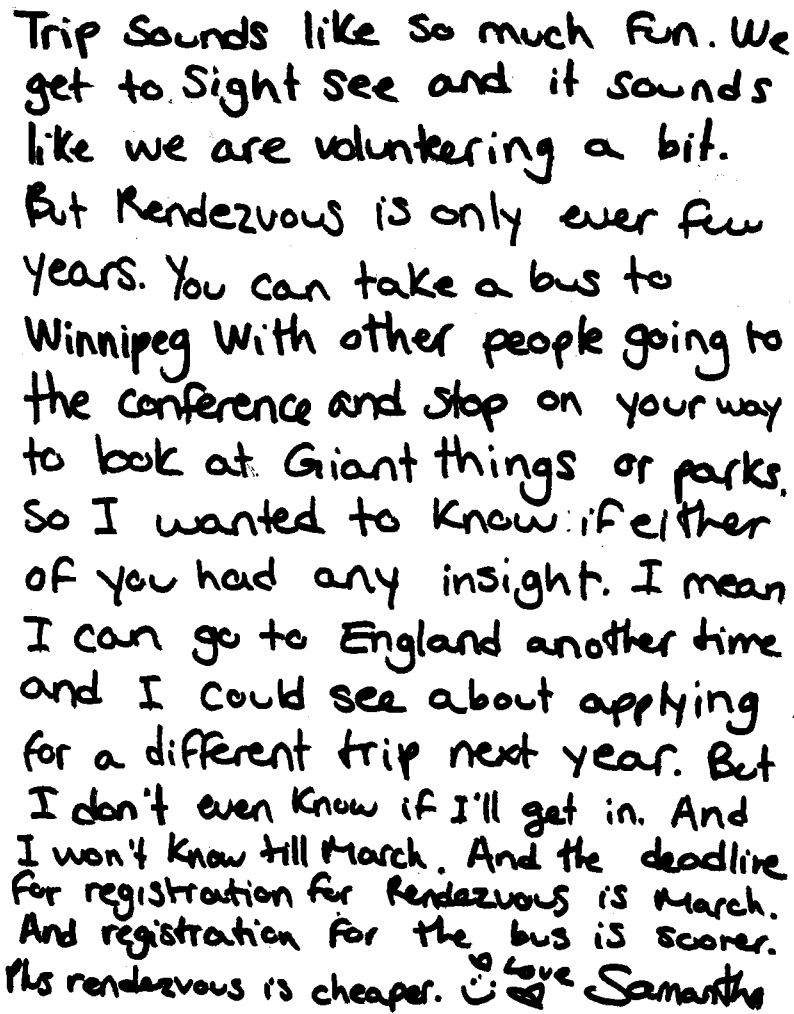 Trip Sounds like so much fun. We
get to Sight see and it sounds
like we are volunteering a bit.
But Rendezvous is only ever few
years. You can take a bus to
Winnipeg With other people going to
the conference and stop on your way
to look at Giant things or parks.
So I wanted to know if either
of you had any insight. I mean
I can go to England another time
and I could see about applying
for a different trip next year. But
I don't even know if I'll get in. And
I won't know till March. And the deadline
for registration for Rendezvous is March.
And registration for the bus is scorer.
Plus rendezvous is cheaper. Love Samantha